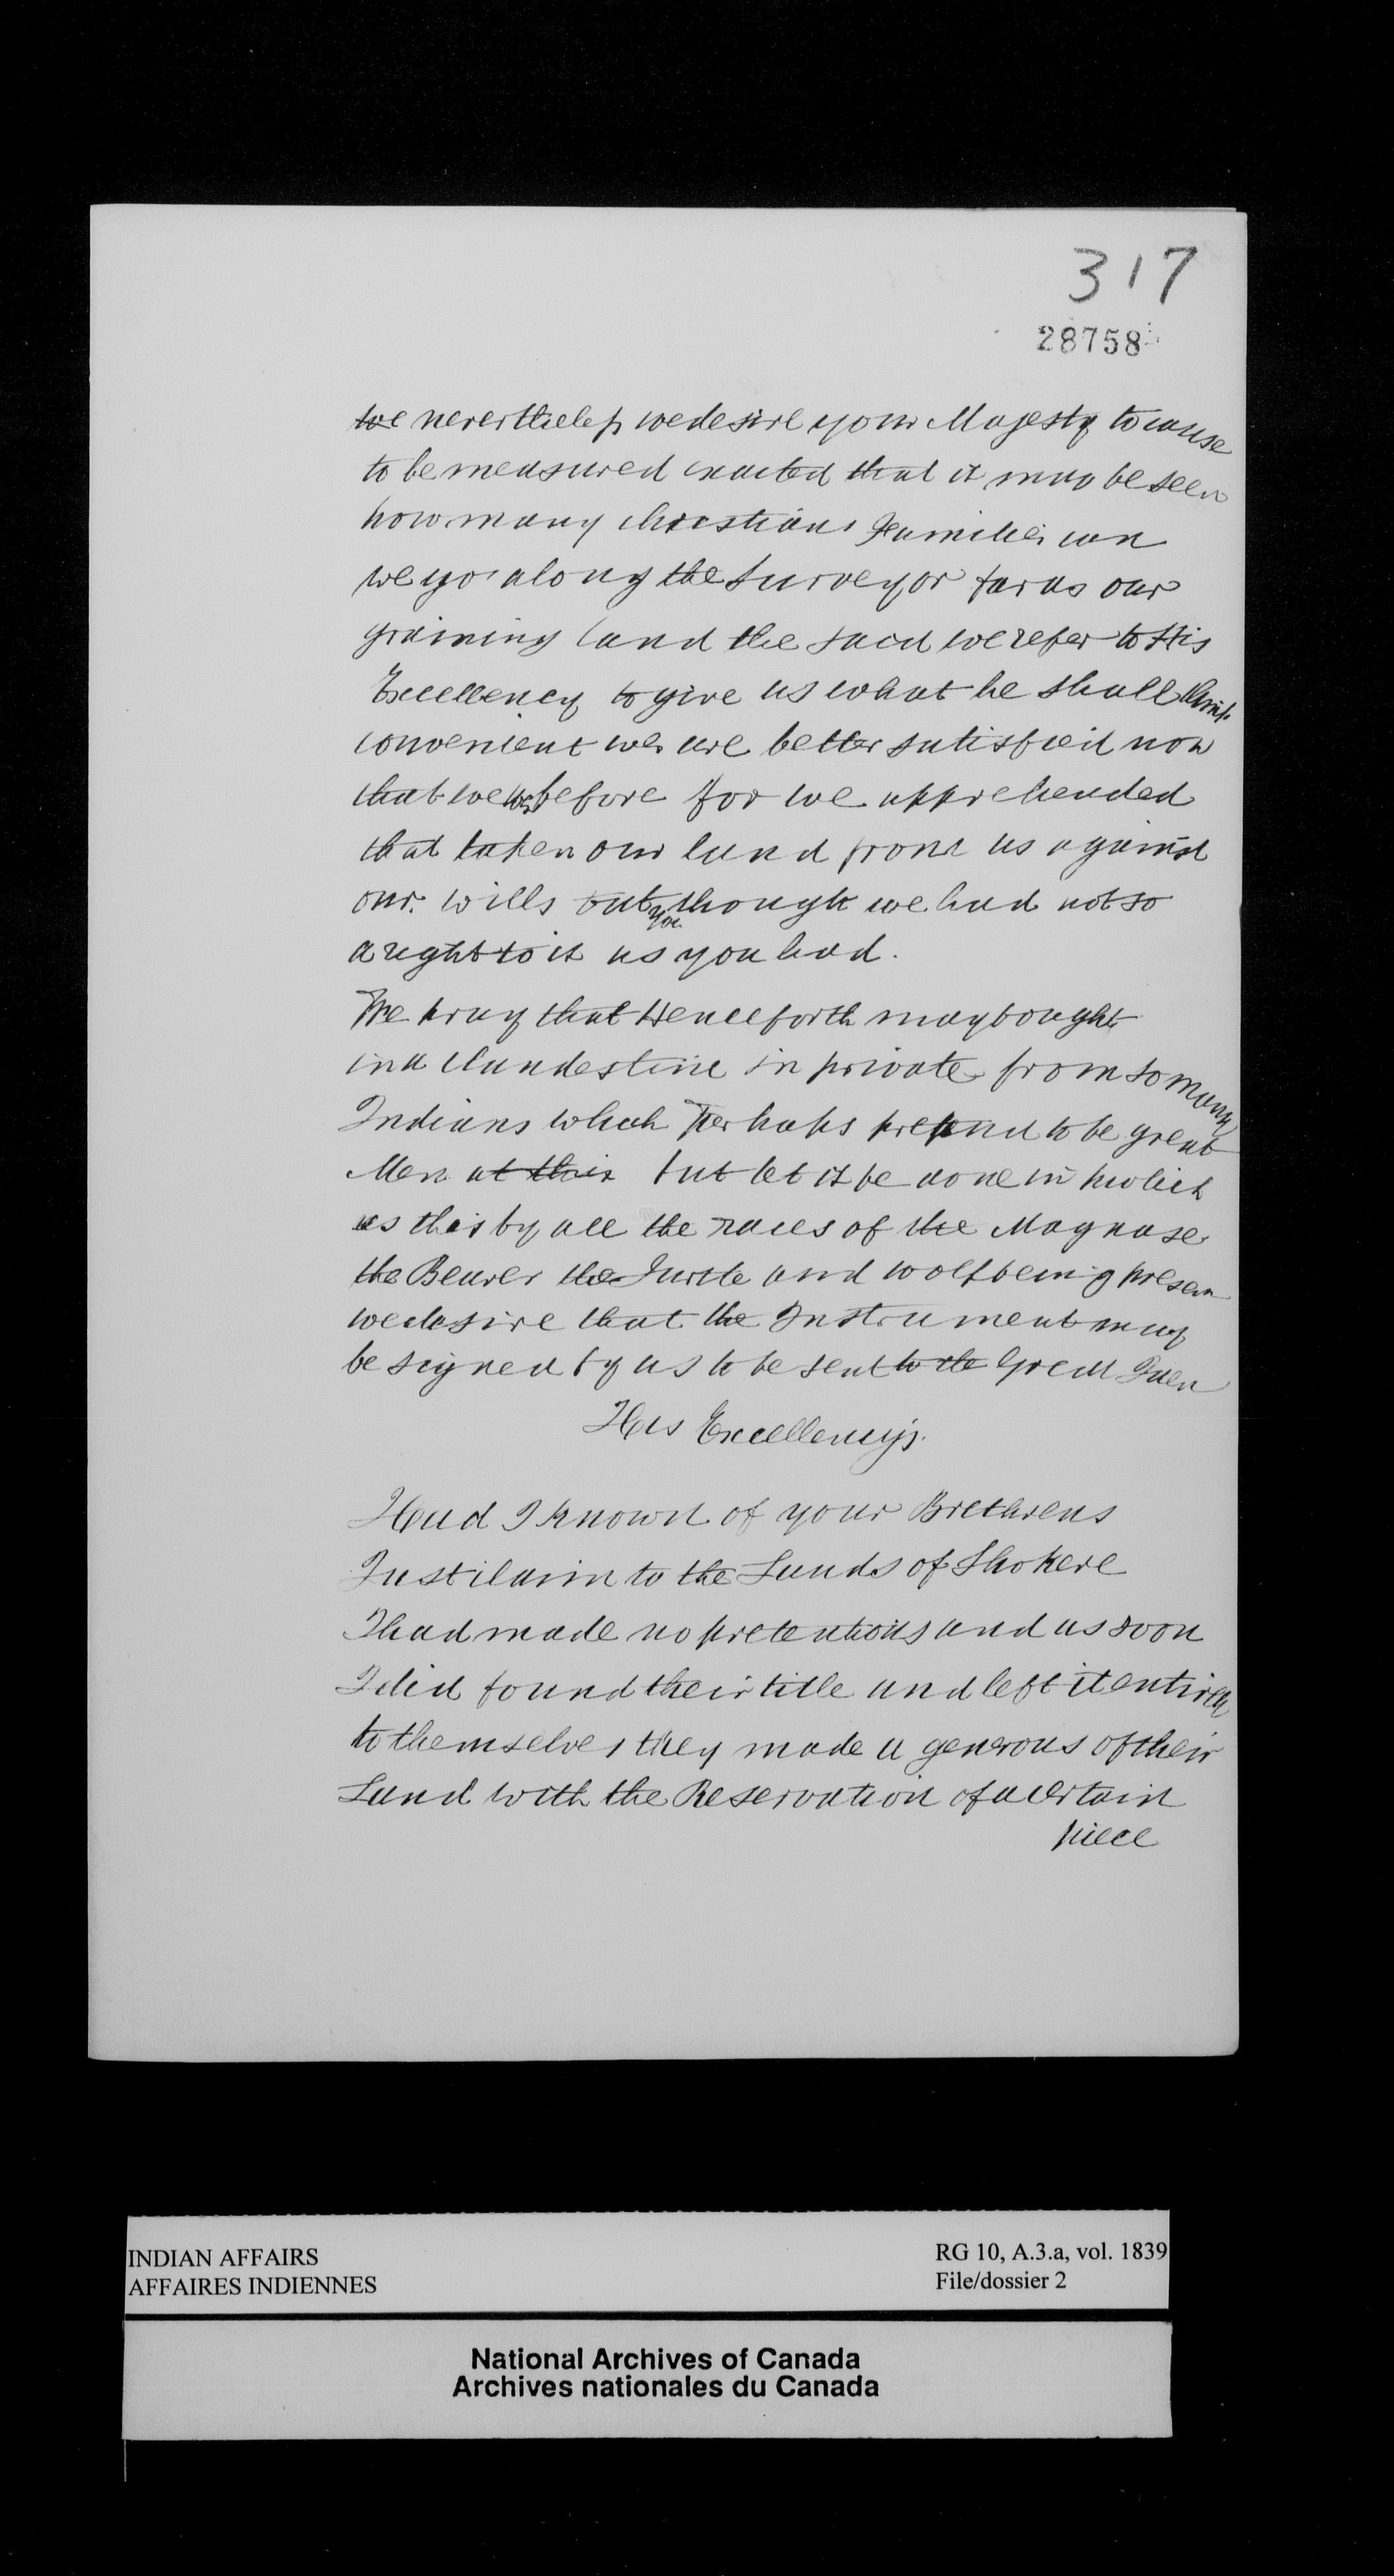 317
28758
we nevertheless we desire your Majesty to cause
to be measured exacted that it may be seen
how many christians Families can
we go along the Surveyor far as our
graining land the said we refer to His
Excellency to give us what he shall think
convenient we are better satisfied now
that we was before for we apprehended
that taken our land from us against
our wills out you though we had not so
a right to it as you had.
We pray that Henceforth may bought
in a clandestine in private from so many
Indians which Perhaps pretend to be great
Men at this but let it be done in publick
as this by all the races of the Maquase
the Beaver the Turtle and wolf being presen
we desire that the Instrument may
be signed by us to be sent to the Great Quen
His Excellency's.
Had I known of your Brethrens
Just claim to the Lands of Skohere
I had made no pretentions and as soon
I did found their title and left it entirely
to themselves they made a generous of their
Land with the Reservation of a certain
piece
INDIAN AFFAIRS
AFFAIRES INDIENNES
RG 10, A.3.a, vol. 1839
File/dossier 2
National Archives of Canada
Archives nationales du Canada